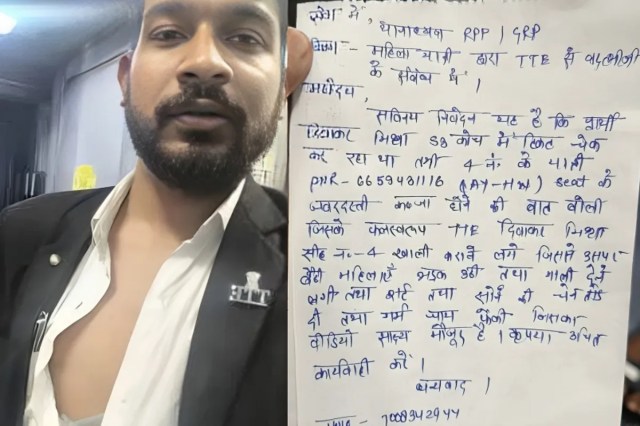 सेवा में,
थानाध्यक्ष RPF / GRP
विषय - महिला यात्री द्वारा TTE से बदतमीजी
के संबंध में ।
महोदय,
सविनय निवेदन यह है कि प्रार्थी
दिवाकर मिश्रा S3 कोच में टिकट चेक
कर रहा था तभी 4 नं. के यात्री
PNR- 6659431116 seat के
जबरदस्ती कब्जा होने की बात बोली
जिसके फलस्वरूप TTE दिवाकर मिश्रा
सीट नं.-4 खाली कराने लगे जिसमे
बैठी महिलाएँ भड़क उठी तथा गाली देने
लगी तथा शर्ट तथा सोने की चेन तोड़
दी तथा गर्म चाय फेंकी जिसका
वीडियो साक्ष्य मौजूद है । कृपया उचित
कार्यवाही करें ।
धन्यवाद ।
7008342944
TTE